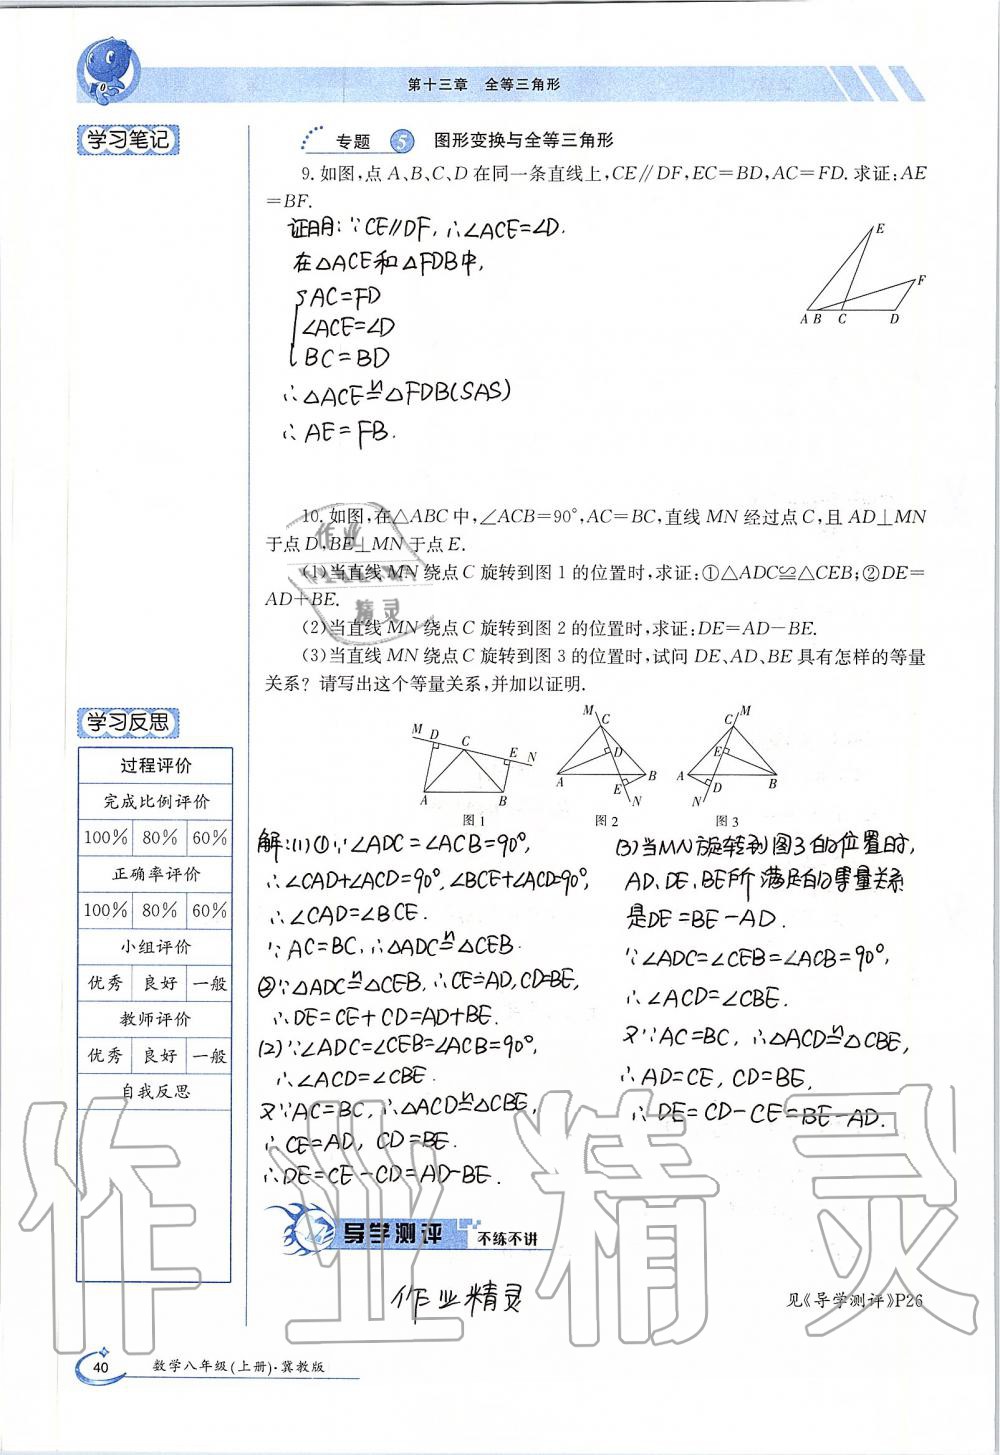 第十三章 全等三角形
学习笔记
专题 5 图形变换与全等三角形
9.如图,点A、B、C、D在同一条直线上,CE∥DF,EC=BD,AC=FD.求证:AE
=BF.
证明:∵CE∥DF,∴∠ACE=∠D.
在△ACE和△FDB中,
AC=FD
∠ACE=∠D
BC=BD
∴△ACE≌△FDB(SAS)
∴AE=FB.
A B C D E F
10.如图,在△ABC中,∠ACB=90°,AC=BC,直线MN经过点C,且AD⊥MN
于点D,BE⊥MN于点E.
(1)当直线MN绕点C旋转到图1的位置时,求证:①△ADC≌△CEB;②DE=
AD+BE.
(2)当直线MN绕点C旋转到图2的位置时,求证:DE=AD-BE.
(3)当直线MN绕点C旋转到图3的位置时,试问DE、AD、BE具有怎样的等量
关系?请写出这个等量关系,并加以证明.
M D C E N A B
图1
M C D A B E N
图2
M C E A D B N
图3
解:(1)①∵∠ADC=∠ACB=90°,
∴∠CAD+∠ACD=90°,∠BCE+∠ACD=90°,
∴∠CAD=∠BCE.
∵AC=BC,∴△ADC≌△CEB.
②∵△ADC≌△CEB,∴CE=AD,CD=BE,
∴DE=CE+CD=AD+BE.
(2)∵∠ADC=∠CEB=∠ACB=90°,
∴∠ACD=∠CBE.
又∵AC=BC,∴△ACD≌△CBE,
∴CE=AD,CD=BE.
∴DE=CE-CD=AD-BE.
(3)当MN旋转到图3的位置时,
AD、DE、BE所满足的等量关系
是DE=BE-AD.
∵∠ADC=∠CEB=∠ACB=90°,
∴∠ACD=∠CBE.
又∵AC=BC,∴△ACD≌△CBE,
∴AD=CE,CD=BE,
∴DE=CD-CE=BE-AD.
学习反思
过程评价
完成比例评价
100% 80% 60%
正确率评价
100% 80% 60%
小组评价
优秀 良好 一般
教师评价
优秀 良好 一般
自我反思
导学测评 不练不讲
作业精灵
见《导学测评》P26
40 数学八年级(上册)·冀教版
作业精灵
作业
精灵